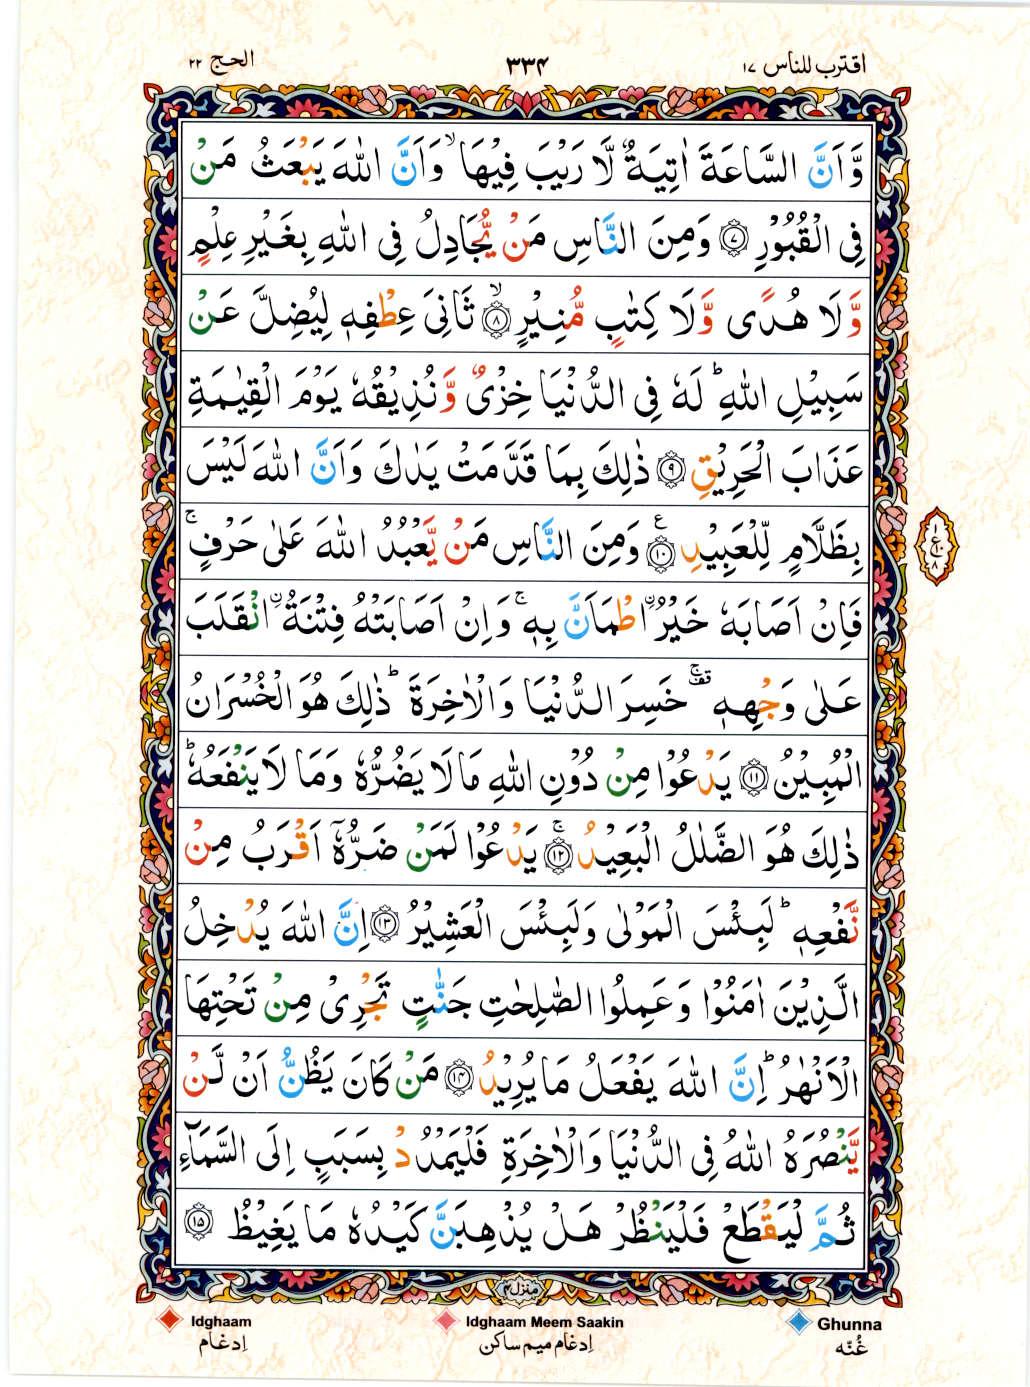 اقترب للناس ١٧
٣٣٤
الحج ٢٢
وَّاَنَّ السَّاعَةَ اٰتِيَةٌ لَّا رَيْبَ فِيْهَا ۙ وَاَنَّ اللّٰهَ يَبْعَثُ مَنْ
فِى الْقُبُوْرِ ۝٧ وَمِنَ النَّاسِ مَنْ يُّجَادِلُ فِى اللّٰهِ بِغَيْرِ عِلْمٍ
وَّلَا هُدًى وَّلَا كِتٰبٍ مُّنِيْرٍ ۙ‏۝٨ ثَانِىَ عِطْفِهٖ لِيُضِلَّ عَنْ
سَبِيْلِ اللّٰهِ ؕ لَهٗ فِى الدُّنْيَا خِزْىٌ وَّنُذِيْقُهٗ يَوْمَ الْقِيٰمَةِ
عَذَابَ الْحَرِيْقِ ۝٩ ذٰلِكَ بِمَا قَدَّمَتْ يَدٰكَ وَاَنَّ اللّٰهَ لَيْسَ
بِظَلَّامٍ لِّلْعَبِيْدِ ۝١٠ ع وَمِنَ النَّاسِ مَنْ يَّعْبُدُ اللّٰهَ عَلٰى حَرْفٍ ۚ
فَاِنْ اَصَابَهٗ خَيْرُ ۨاطْمَاَنَّ بِهٖ ۚ وَاِنْ اَصَابَتْهُ فِتْنَةُ ۨانْقَلَبَ
عَلٰى وَجْهِهٖ ۚقف خَسِرَ الدُّنْيَا وَالْاٰخِرَةَ ؕ ذٰلِكَ هُوَ الْخُسْرَانُ
الْمُبِيْنُ ۝١١ يَدْعُوْا مِنْ دُوْنِ اللّٰهِ مَا لَا يَضُرُّهٗ وَمَا لَا يَنْفَعُهٗ ؕ
ذٰلِكَ هُوَ الضَّلٰلُ الْبَعِيْدُ ۚ۝١٢ يَدْعُوْا لَمَنْ ضَرُّهٗۤ اَقْرَبُ مِنْ
نَّفْعِهٖ ؕ لَبِئْسَ الْمَوْلٰى وَلَبِئْسَ الْعَشِيْرُ ۝١٣ اِنَّ اللّٰهَ يُدْخِلُ
الَّذِيْنَ اٰمَنُوْا وَعَمِلُوا الصّٰلِحٰتِ جَنّٰتٍ تَجْرِىْ مِنْ تَحْتِهَا
الْاَنْهٰرُ ؕ اِنَّ اللّٰهَ يَفْعَلُ مَا يُرِيْدُ ۝١٤ مَنْ كَانَ يَظُنُّ اَنْ لَّنْ
يَّنْصُرَهُ اللّٰهُ فِى الدُّنْيَا وَالْاٰخِرَةِ فَلْيَمْدُدْ بِسَبَبٍ اِلَى السَّمَآءِ
ثُمَّ لْيَقْطَعْ فَلْيَنْظُرْ هَلْ يُذْهِبَنَّ كَيْدُهٗ مَا يَغِيْظُ ۝١٥
١
ع ١٠
٨
منزل ٤
Ghunna
غُنّه
Idghaam Meem Saakin
اِدغام میم ساکن
Idghaam
اِدغام